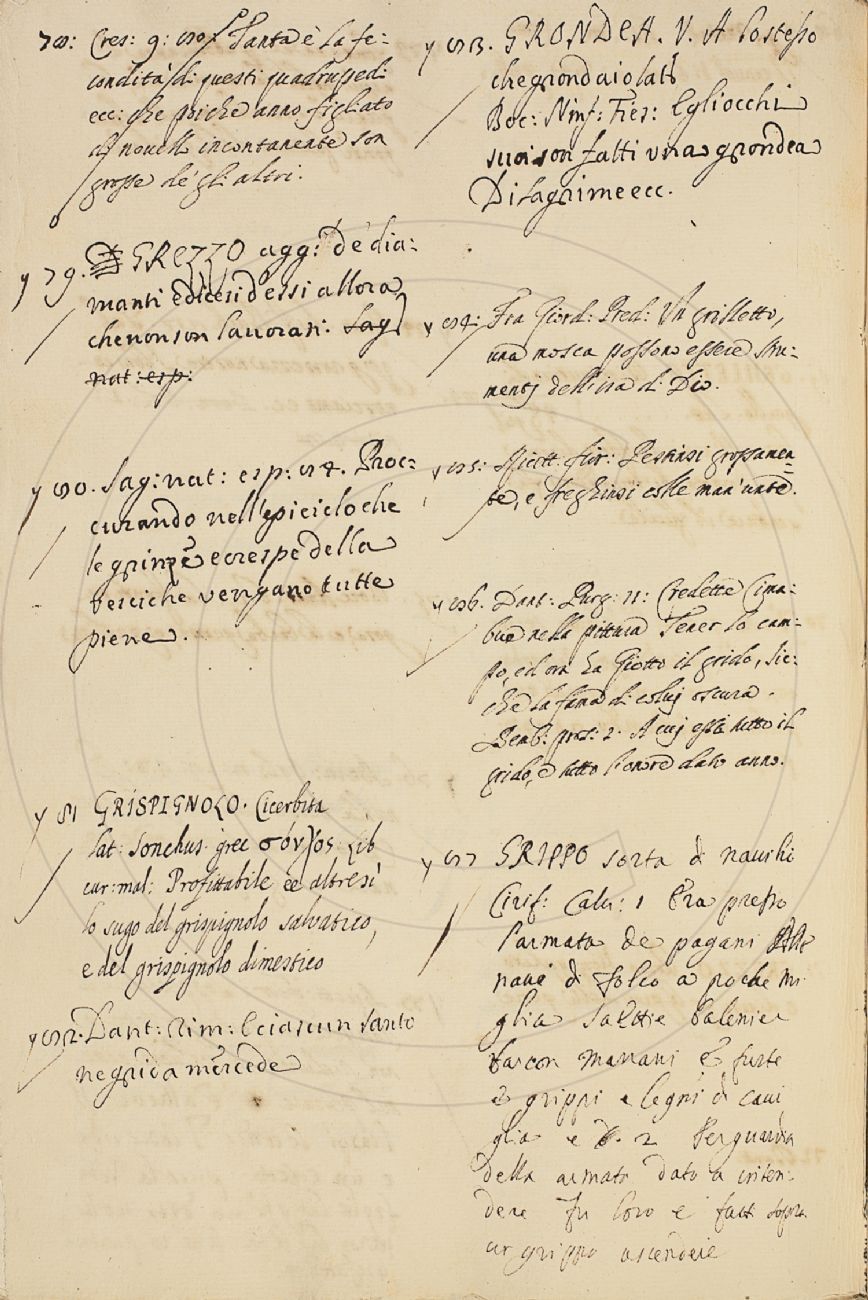 78: Cres: 9: 80. Tanta è la fe-
condità di questi quadrupedi
ecc: che poiche anno figliato
di novell incontanente son
grosse de gli altri.
y 79. GREZZO agg: De dia:
manti e dicesi d'essi allora,
che non son lavorati. Sag
nat: esp:
y 80. Sag: nat: esp: 84. Proc:
curando nell'episiclo che
le grinze e crespe della
vesciche vengano tutte
piene.
y 81 GRISPIGNOLO. Cicerbita
lat: sonchus grec σόγχος. Lib
cur: mal: Profittabile ee altresì
lo sugo del grispignolo salvatico,
e del grispignolo dimestico
y 82. Dant: Rim: E ciascun santo
ne grida mercede
y 83. GRONDEA. V. A lo stesso
che grondaio lat:
Boc: Ninf: Fies: E gli occhi
suoi son fatti una grondea
Di lagrime ecc.
y 84: Fra Giord: Pred: Un grilletto,
una mosca possono essere stru-
menti dell'ira di Dio.
y 85: Ricett: fior: Pestinsi grossamen-
te, e freghinsi colle man' unte.
y 86. Dant: Purg: 11: Credette Cima-
bue nella pittura Tener lo cam-
po, ed ora ha Giotto il grido, Sic-
che la fama di colui oscura.
Bemb: pros: 2. A cui essi tutto il
grido, e tutto l'onore dato anno.
y 87 GRIPPO sorta di navilii
Cirif: Calv: 1 Era presso
l'armata de pagani
nave di Folco a poche mi
glia Saettie balenier
barcon marrani e fuste
e grippi e legni di cavi
glia e 2 Per guardia
della armata dato a inten:
dere Fu loro e fatt sopra
un grippo ascendere